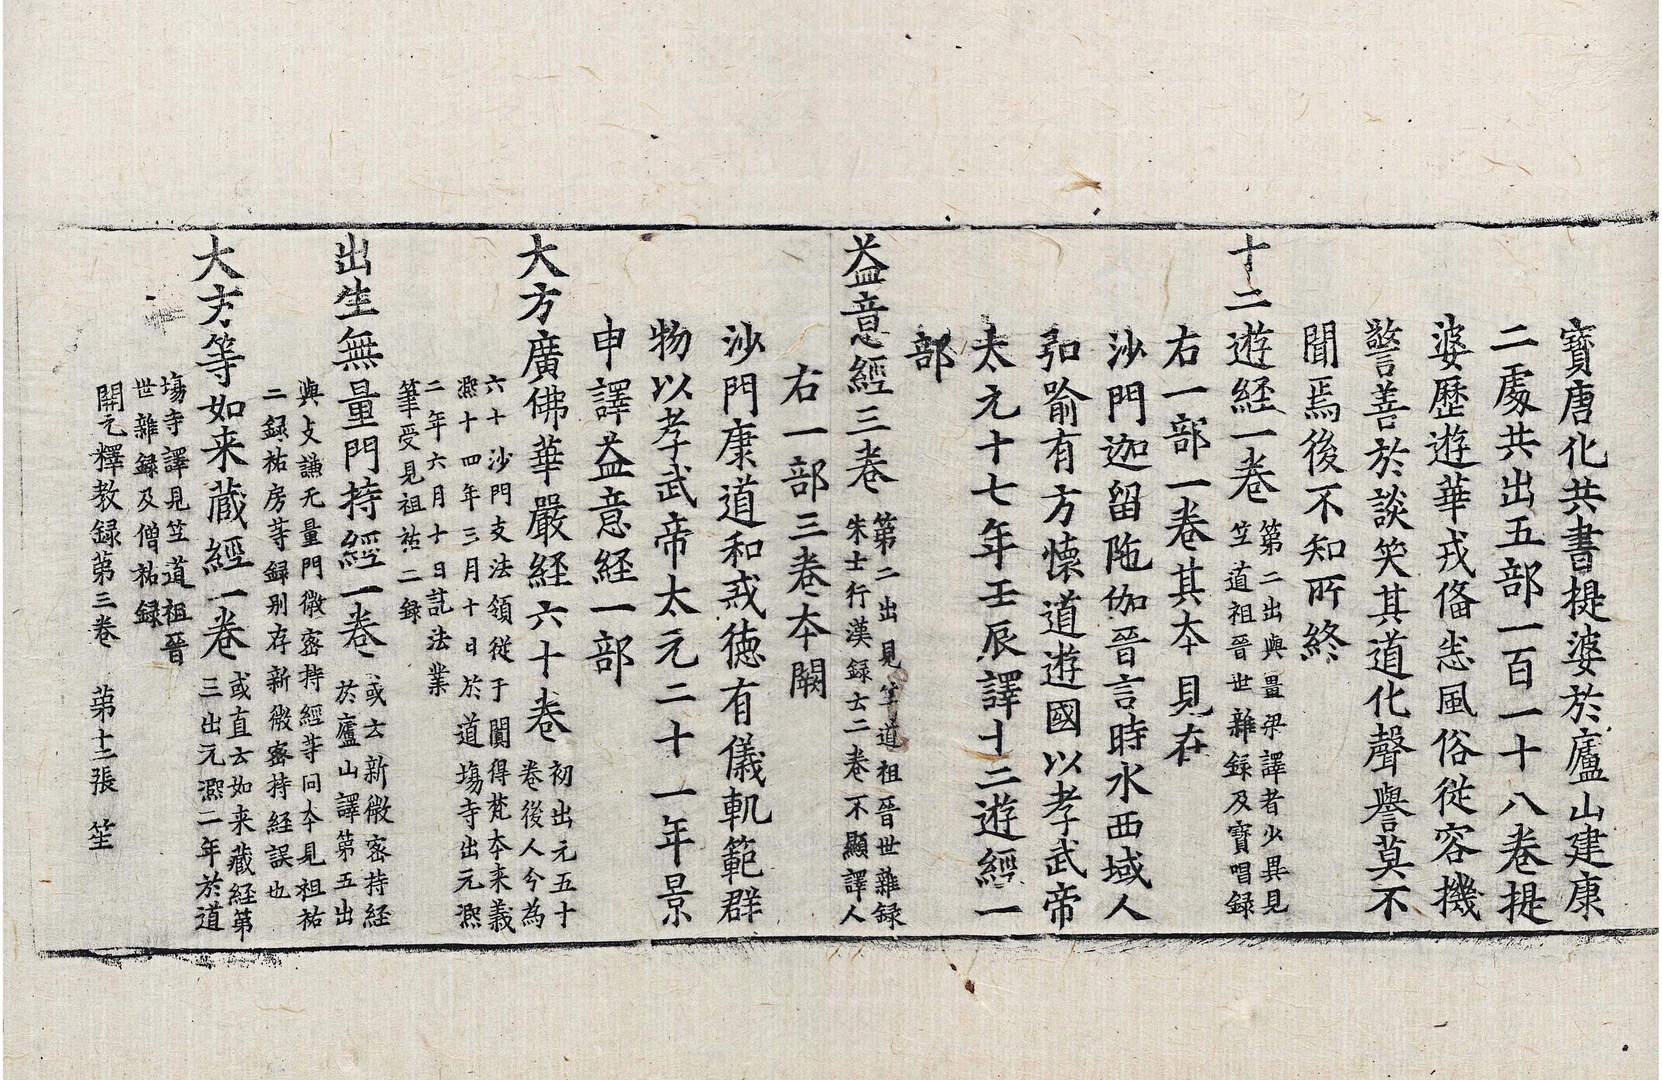 寶唐化共書提婆於廬山建康
二處共出五部一百一十八卷提
婆歷遊華戎俻悉風俗從容機
警善於談笑其道化聲譽莫不
聞焉後不知所終
十二遊経一卷
第二出與畺梁譯者少異見
竺道祖晉世雜録及寶唱録
右一部一卷其夲見在
沙門迦留陁伽晉言時水西域人
弘喻有方懷道遊國以孝武帝
太元十七年壬辰譯十二遊經一
部
益意經三卷
第二出見竺道祖晉世雜録
朱士行漢録云二卷不顯譯人
右一部三卷夲闕
沙門康道和戒徳有儀軌範群
物以孝武帝太元二十一年景
申譯益意经一部
大方廣佛華嚴経六十卷
初出元五十
卷後人今為
六十沙門支法領従于闐得梵夲来義
熈十四年三月十日於道塲寺出元熈
二年六月十日訖法業
筆受見祖祐二録
出生無量門持經一卷
或云新微密持経
於廬山譯第五出
與支謙无量門微密持經等同夲見祖祐
二録祐房等録别存新微密持経誤也
大方等如来蔵經一卷
或直云如来藏経第
三出元熈二年於道
塲寺譯見竺道祖晉
世雜録及僧祐録
開元釋教録第三卷　第十二張　笙